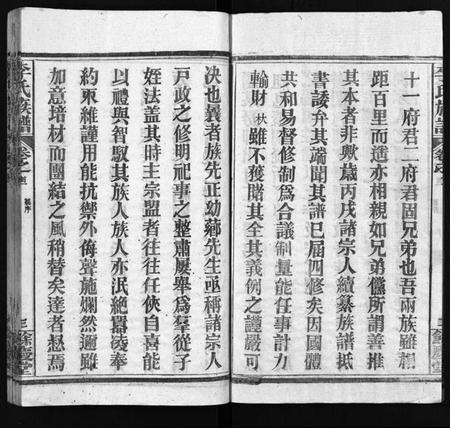 十一府君二府君固兄弟也吾兩族雖相
距百里而遙亦相親如兄弟儻所謂善推
其本者非歟歲丙戌諸宗人續纂族譜抵
書諉弁其端聞其譜已屆四修矣因國體
共和易督修制為合議制量能任事計力
輸財 狄 雖不獲睹其全其義例之謹嚴可
決也曩者族先正幼蘅先生亟稱諸宗人
戸政之修明祀事之整肅屢舉為羣從子
姪法蓋其時主宗盟者往往任俠自喜能
以禮與智馭其族人族人亦泯絶囂凌奉
約束維謹用能抗禦外侮聲施爛然邇雖
加意培材而團結之風稍替矣達者愳焉
李氏族譜
卷之
序
三
餘慶堂